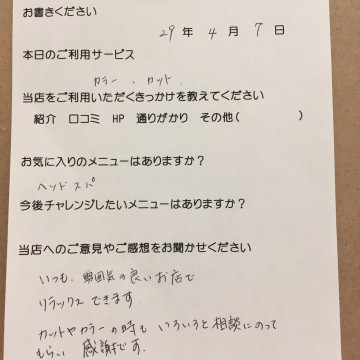 お書きください
29年 4月 7日
本日のご利用サービス
カラー . カット
当店をご利用いただくきっかけを教えてください
紹介 口コミ HP 通りがかり その他( )
お気に入りのメニューはありますか?
ヘッドスパ
今後チャレンジしたいメニューはありますか?
当店へのご意見やご感想をお聞かせください
いつも、雰囲気の良いお店で
リラックスできます
カットやカラーの時も いろいろと相談にのって
もらい 感謝です.